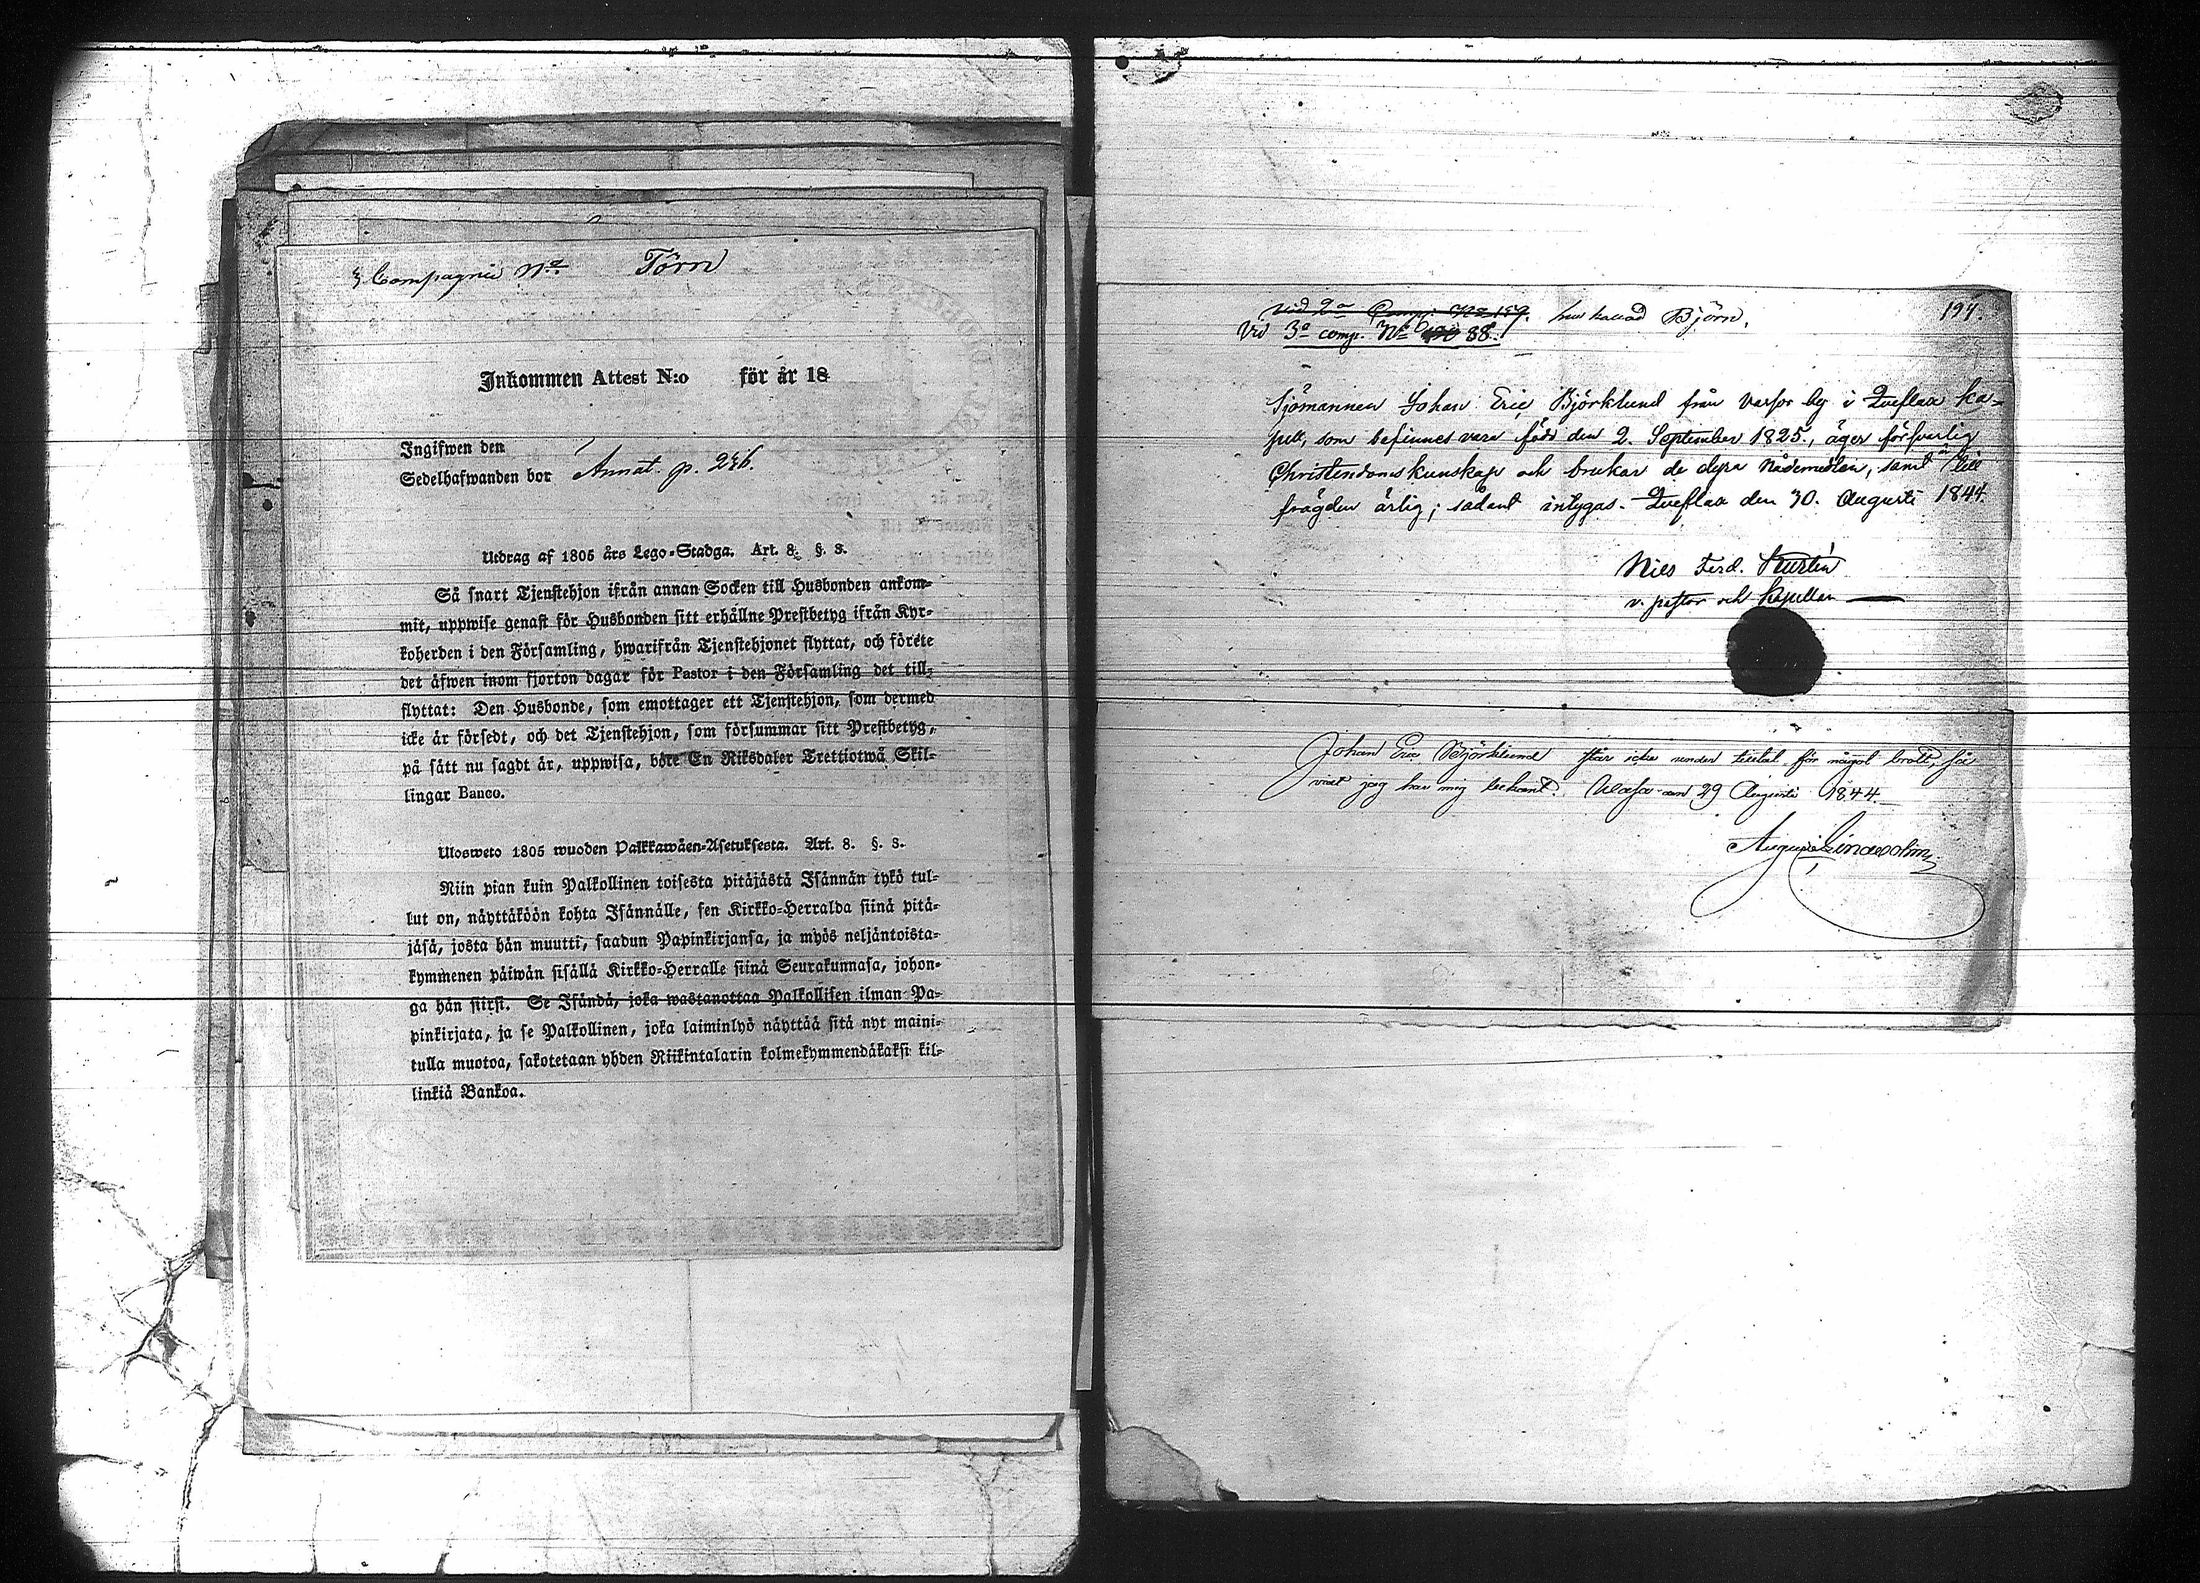 3 Compagnie No Törn
Inkommen Attest N:o för år 18
Ingifwen den
Sedelhafwanden bor Annat. p. 246.
Utdrag af 1805 års Lego-Stadga. Art. 8. §. 3.
Så snart Tjenstehjon ifrån annan Socken till Husbonden ankom-
mit, uppwise genast för Husbonden sitt erhållne Prestbetyg ifrån Kyr-
koherden i den Församling, hwarifrån Tjenstehjonet flyttat, och förete
det äfwen inom fjorton dagar för Pastor i den Församling det till-
flyttat: Den Husbonde, som emottager ett Tjenstehjon, som dermed
icke är försedt, och det Tjenstehjon, som försummar sitt Prestbetyg,
på sätt nu sagdt är, uppwisa, böte En Riksdaler Trettiotwå Skil-
lingar Banco.
Ulosweto 1805 wuoden Palkkawäen-Asetuksesta. Art. 8. §. 3.
Niin pian kuin Palkollinen toisesta pitäjästä Isännän tykö tul-
lut on, näyttäköön kohta Isännälle, sen Kirkko-Herralda siinä pitä-
jäsä, josta hän muutti, saadun Papinkirjansa, ja myös neljäntoista-
kymmenen päiwän sisällä Kirkko-Herralle siinä Seurakunnasa, johon-
ga hän siirsi. Se Isändä, joka wastanottaa Palkollisen ilman Pa-
pinkirjata, ja se Palkollinen, joka laiminlyö näyttää sitä nyt maini-
tulla muotoa, sakotetaan yhden Riikintalarin kolmekymmendäkaksi kil-
linkiä Bankoa.
Vid 2a Comp: No 159. hus kallad Björn.
197.
Vid 3a comp. No 88.
Sjömannen Johan Eric Björklund från Vassor by i Qveflax ka-
pell, som befinnes vara född den 2. September 1825, äger försvarlig
Christendomskunskap och brukar de dyra Nådemedlen, samt är till
frägden ärlig; sådant intygas. Qveflax den 30. Augusti 1844.
Nils Ferd.
v. pastor och Kapellan
Johan Eric Björklund står icke under tilltal för något brott, så
vidt jag har mig bekant. Wasa den 29 Augusti 1844.
August